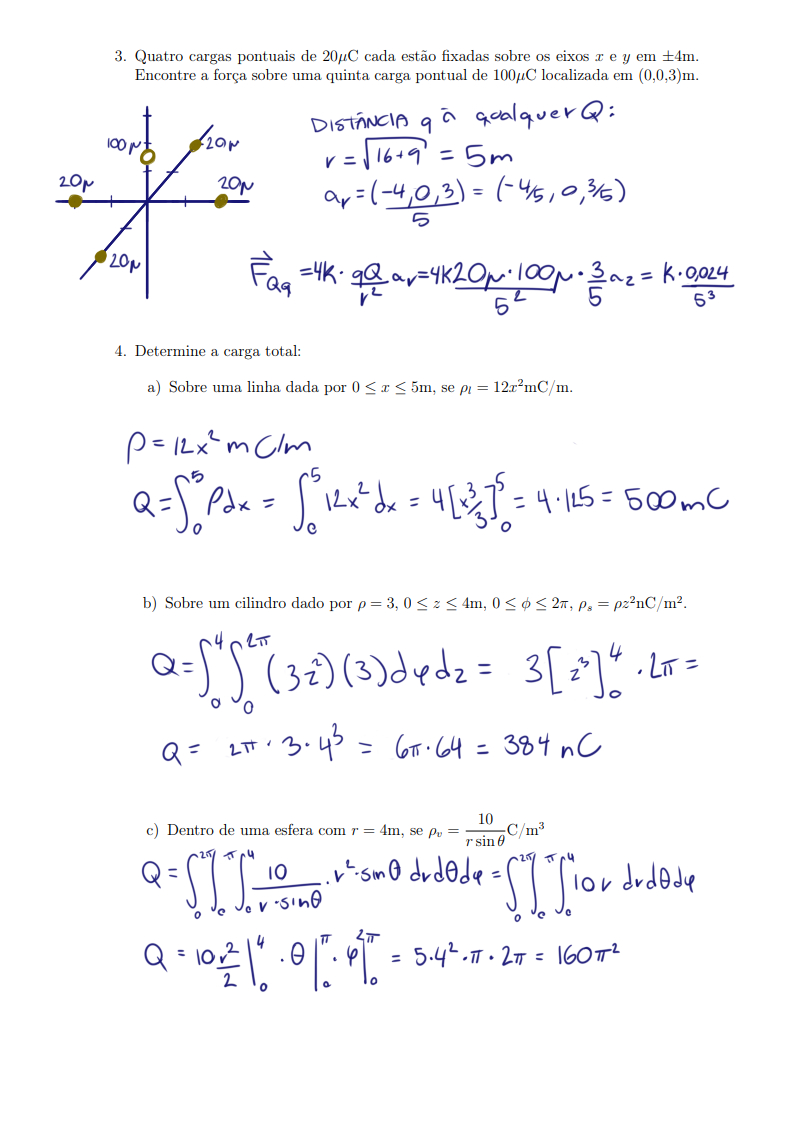 3. Quatro cargas pontuais de 20μC cada estão fixadas sobre os eixos x e y em ±4m.
Encontre a força sobre uma quinta carga pontual de 100μC localizada em (0,0,3)m.
DISTÂNCIA q à qualquer Q:
100μ
20μ
r = √(16+9) = 5m
20μ
20μ
a_r = (-4,0,3)/5 = (-4/5, 0, 3/5)
20μ
F⃗_Qq = 4k · qQ/r² a_r = 4k 20μ·100μ/5² · 3/5 a_z = k · 0,024/5³
4. Determine a carga total:
a) Sobre uma linha dada por 0 ≤ x ≤ 5m, se ρ_l = 12x²mC/m.
ρ = 12x² mC/m
Q = ∫₀⁵ ρdx = ∫₀⁵ 12x² dx = 4[x³/3]₀⁵ = 4·125 = 500mC
b) Sobre um cilindro dado por ρ = 3, 0 ≤ z ≤ 4m, 0 ≤ ϕ ≤ 2π, ρ_s = ρz²nC/m².
Q = ∫₀⁴ ∫₀^2π (3z²)(3)dφdz = 3[z³]₀⁴ · 2π =
Q = 2π · 3 · 4³ = 6π · 64 = 384 nC
c) Dentro de uma esfera com r = 4m, se ρ_v = 10/(r sin θ) C/m³
Q = ∫₀^2π ∫₀^π ∫₀⁴ 10/(r·sinθ) · r²·sinθ drdθdφ = ∫₀^2π ∫₀^π ∫₀⁴ 10r drdθdφ
Q = 10 r²/2 |₀⁴ · θ|₀^π · φ|₀^2π = 5·4²·π·2π = 160π²